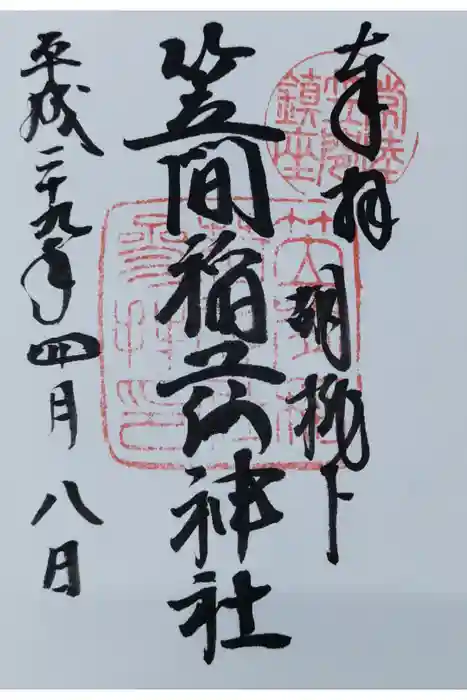 奉拝
胡桃下
常陸
笠間
鎮座
笠間稲荷神社
平成二十九年四月八日